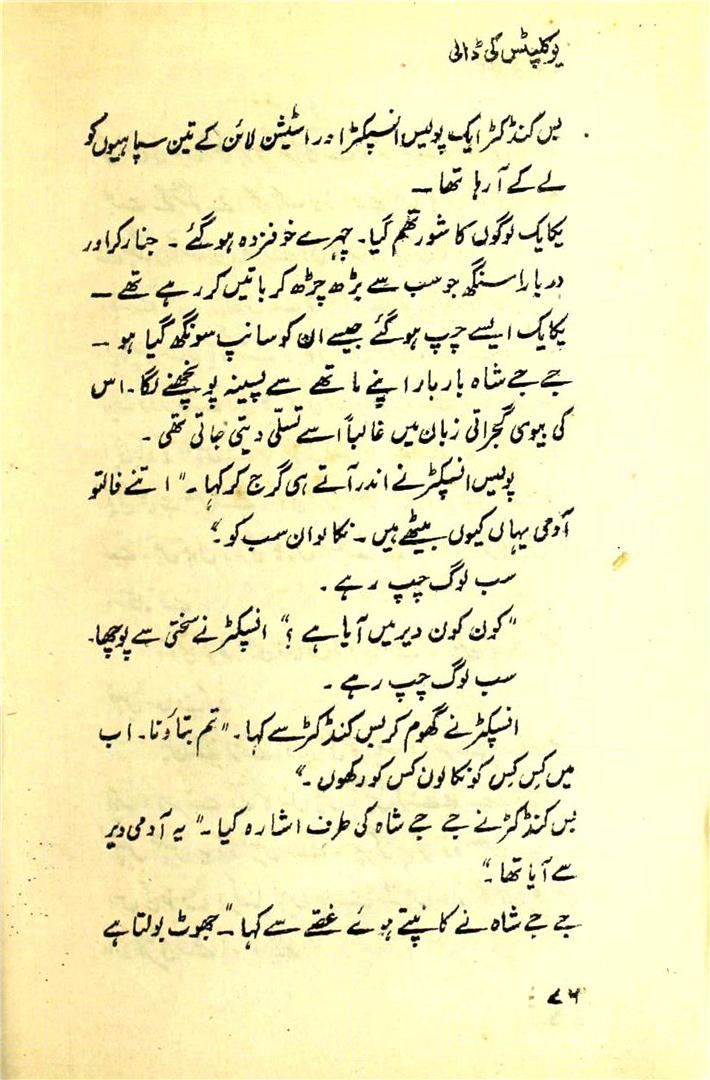 یوکلپٹس کی ڈالی
بس کنڈکٹر ایک پولیس انسپکٹر اور اسٹیشن لائن کے تین سپاہیوں کو
لے کے آ رہا تھا ــ
یکایک لوگوں کا شور تھم گیا۔ چہرے خوفزدہ ہو گئے ۔ جنارکر اور
دربارا سنگھ جو سب سے بڑھ چڑھ کر باتیں کر رہے تھے ــ
یکایک ایسے چپ ہو گئے جیسے ان کو سانپ سونگھ گیا ہو ــ
جے جے شاہ بار بار اپنے ماتھے سے پسینہ پونچھنے لگا ۔ اس
کی بیوی گجراتی زبان میں غالباً اسے تسلّی دیتی جاتی تھی ۔
پولیس انسپکٹر نے اندر آتے ہی گرج کر کہا ۔ " اتنے فالتو
آدمی یہاں کیوں بیٹھے ہیں ۔ نکالو ان سب کو ۔"
سب لوگ چپ رہے ۔
"کون کون دیر میں آیا ہے ؟" انسپکٹر نے سختی سے پوچھا۔
سب لوگ چپ رہے ۔
انسپکٹر نے گھوم کر بس کنڈکٹر سے کہا ۔ " تم بتاؤنا ۔ اب
میں کِس کِس کو نکالون کس کو رکھوں ۔"
بس کنڈکٹر نے جے جے شاہ کی طرف اشارہ کیا ۔ " یہ آدمی دیر
سے آیا تھا ۔"
جے جے شاہ نے کانپتے ہوئے غصّے سے کہا ۔ " جھوٹ بولتا ہے
۷۶